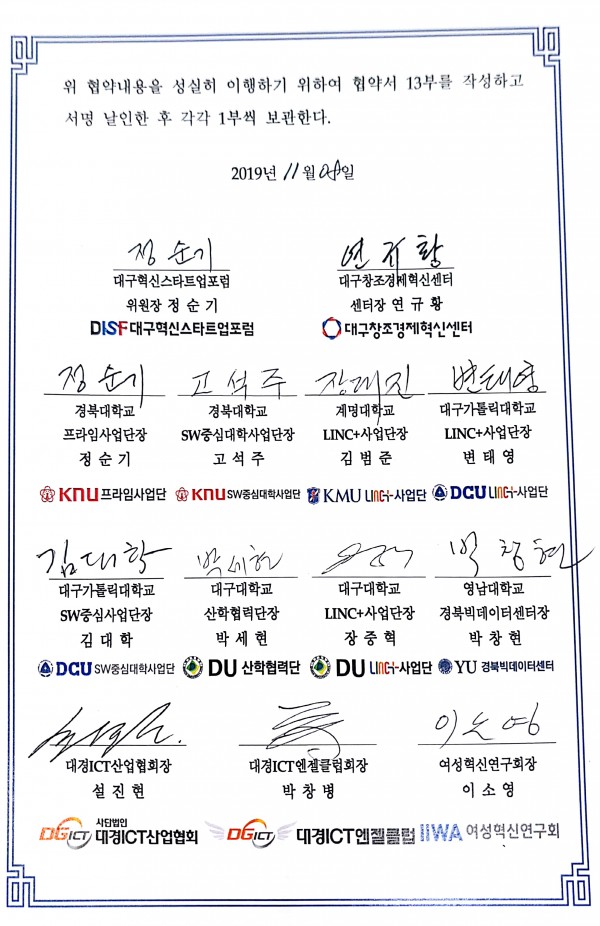 위 협약내용을 성실히 이행하기 위하여 협약서 13부를 작성하고
서명 날인한 후 각각 1부씩 보관한다.
2019년 11월 08일
정순기 연규황
대구혁신스타트업포럼 대구창조경제혁신센터
위원장 정순기 센터장 연규황
DISF 대구혁신스타트업포럼 대구창조경제혁신센터
정순기 고석주 장래진 변태영
경북대학교 경북대학교 계명대학교 대구가톨릭대학교
프라임사업단장 SW중심대학사업단장 LINC+사업단장 LINC+사업단장
정순기 고석주 김범준 변태영
KNU 프라임사업단 KNU SW중심대학사업단 KMU LINC+사업단 DCU LINC+사업단
김대학 박세현 박창현
대구가톨릭대학교 대구대학교 대구대학교 영남대학교
SW중심사업단장 산학협력단장 LINC+사업단장 경북빅데이터센터장
김대학 박세현 장중혁 박창현
DCU SW중심대학사업단 DU 산학협력단 DU LINC+사업단 YU 경북빅데이터센터
이소영
대경ICT산업협회장 대경ICT엔젤클럽회장 여성혁신연구회장
설진현 박창병 이소영
DGICT 사단법인 대경ICT산업협회 DGICT 대경ICT엔젤클럽 IIWA 여성혁신연구회